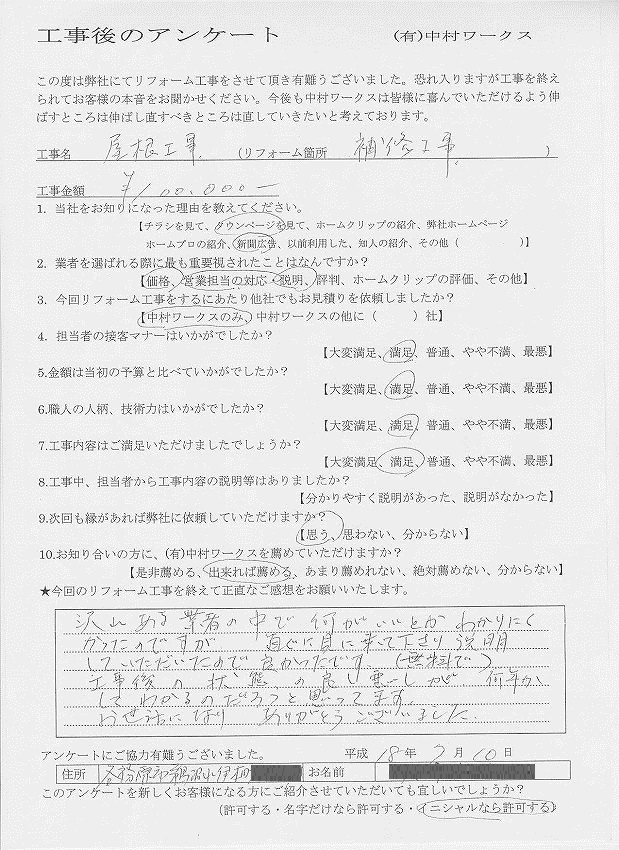 工事後のアンケート (有)中村ワークス
この度は弊社にてリフォーム工事をさせて頂き有難うございました。恐れ入りますが工事を終え
られてお客様の本音をお聞かせください。今後も中村ワークスは皆様に喜んでいただけるよう伸
ばすところは伸ばし直すべきところは直していきたいと考えております。
工事名 屋根工事 (リフォーム箇所 補修工事 )
工事金額 ¥100.000-
1. 当社をお知りになった理由を教えてください。
【チラシを見て、タウンページを見て、ホームクリップの紹介、弊社ホームページ
ホームプロの紹介、新聞広告、以前利用した、知人の紹介、その他( )】
2. 業者を選ばれる際に最も重要視されたことはなんですか?
【価格、営業担当の対応・説明、評判、ホームクリップの評価、その他】
3. 今回リフォーム工事をするにあたり他社でもお見積りを依頼しましたか?
【中村ワークスのみ、中村ワークスの他に( )社】
4. 担当者の接客マナーはいかがでしたか?
【大変満足、満足、普通、やや不満、最悪】
5.金額は当初の予算と比べていかがでしたか?
【大変満足、満足、普通、やや不満、最悪】
6.職人の人柄、技術力はいかがでしたか?
【大変満足、満足、普通、やや不満、最悪】
7.工事内容はご満足いただけましたでしょうか?
【大変満足、満足、普通、やや不満、最悪】
8.工事中、担当者から工事内容の説明等はありましたか?
【分かりやすく説明があった、説明がなかった】
9.次回も縁があれば弊社に依頼していただけますか?
【思う、思わない、分からない】
10.お知り合いの方に、(有)中村ワークスを薦めていただけますか?
【是非薦める、出来れば薦める、あまり薦めれない、絶対薦めない、分からない】
★今回のリフォーム工事を終えて正直なご感想をお願いいたします。
沢山ある業者の中で何がいいとかわかりにく
かったのですが 直ぐに見に来て下さり説明
していただいたので良かったです。(無料で)
工事後の状態の良し悪しが 何年か
してわかるのだろうと思ってます。
お世話になり ありがとうございました。
アンケートにご協力有難うございました。 平成 18年 2月 10日
住所 各務原市鵜沼 お名前
このアンケートを新しくお客様になる方にご紹介させていただいても宜しいでしょうか?
(許可する・名字だけなら許可する・イニシャルなら許可する)